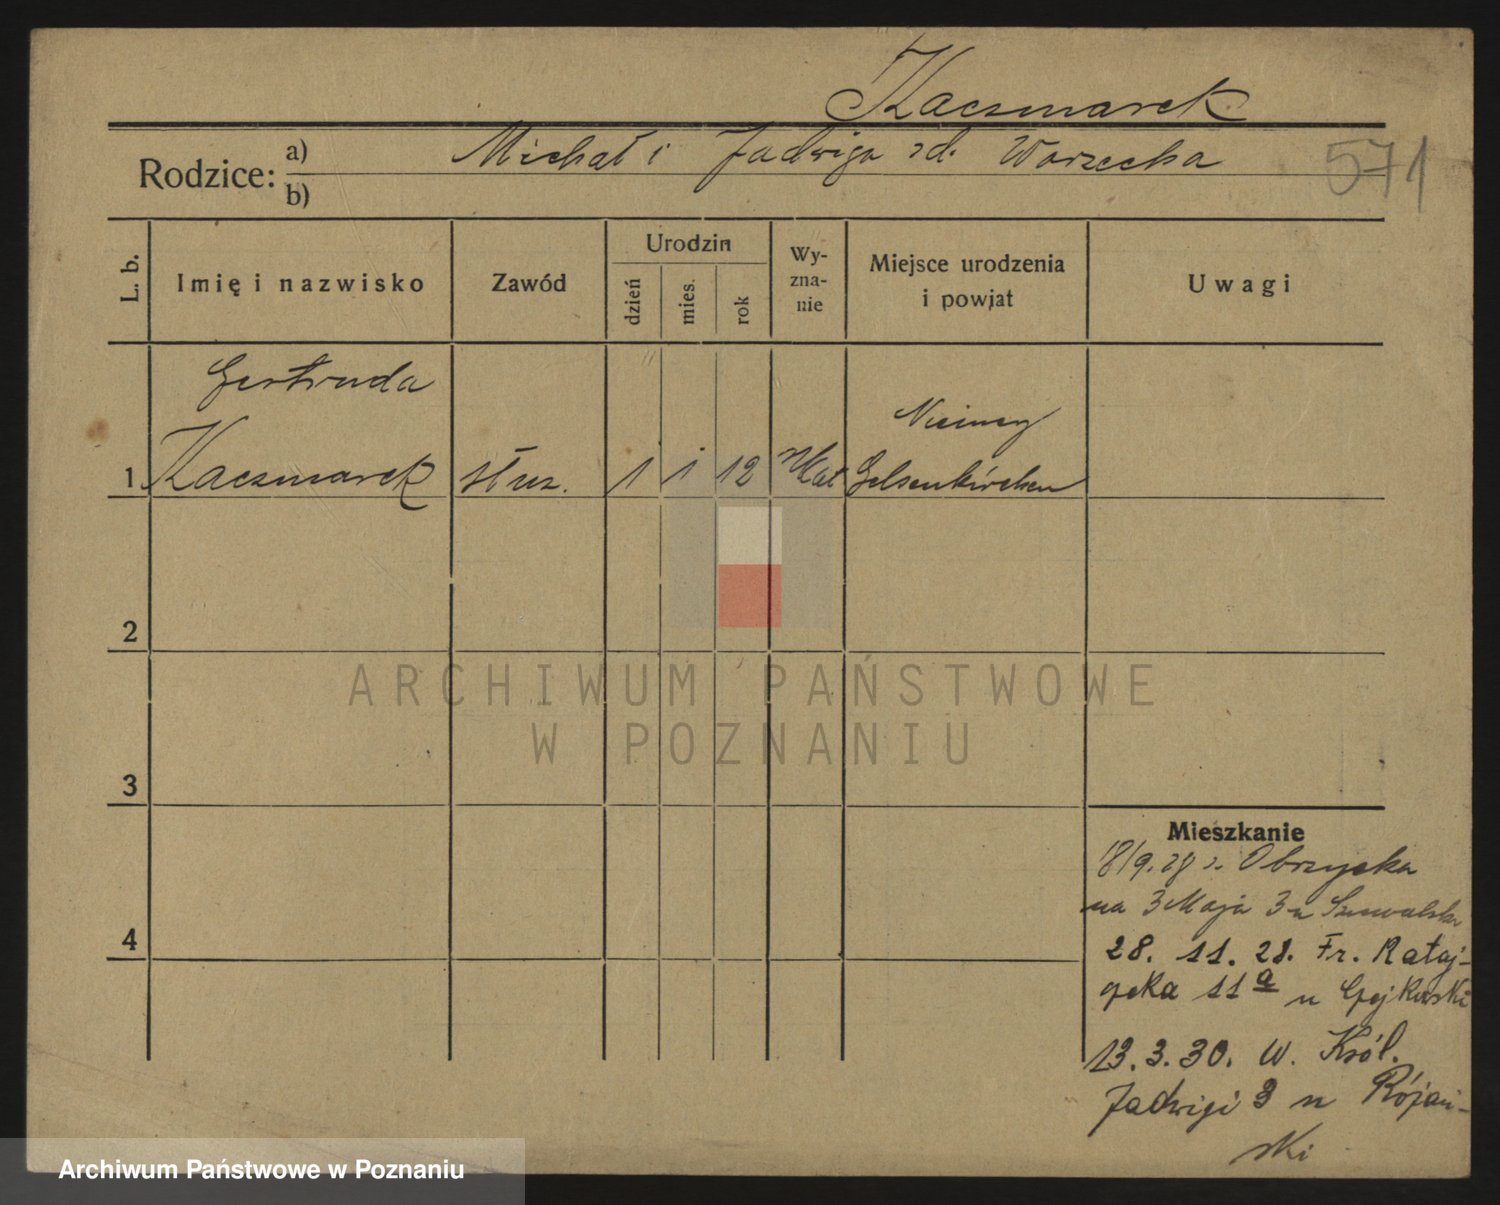 Kaczmarek
Rodzice: a) Michał i Jadwiga zd. Warzecha
b)
571
L. b.
Imię i nazwisko
Zawód
Urodzin
dzień
mies.
rok
Wy-
zna-
nie
Miejsce urodzenia
i powiat
Uwagi
Gertruda
Niemcy
1 Kaczmarek służ. 1 1 12 rz Kat Gelsenkirchen
2
3
4
ARCHIWUM PAŃSTWOWE
W POZNANIU
Mieszkanie
18/9. 28 z. Obrzycka
na 3 Maja 3 u
28. 11. 28. Fr. Rataj-
czaka 11a u
13. 3. 30. W. Król.
Jadwigi 3 u Rójań-
ski
Archiwum Państwowe w Poznaniu